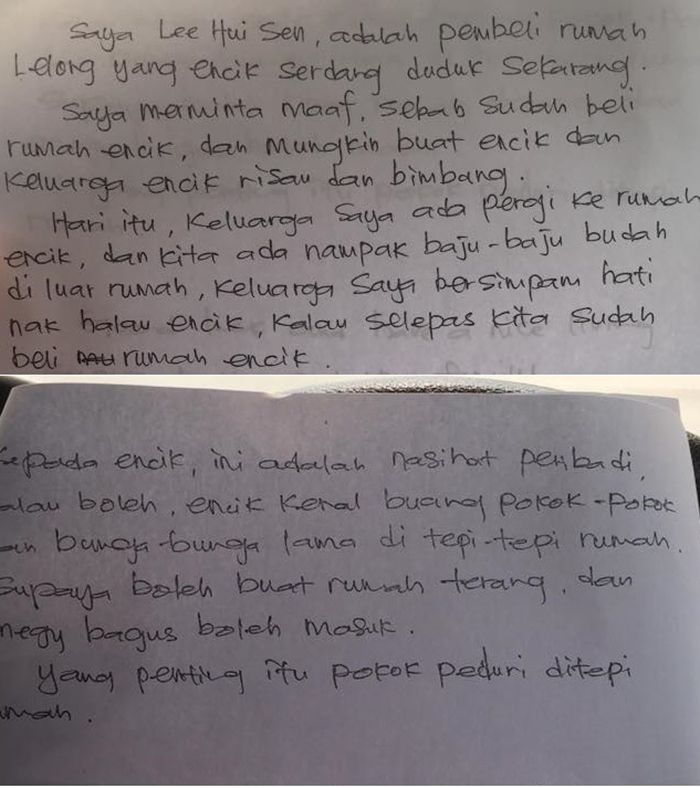 Saya Lee Hui Sen, adalah pembeli rumah
Lelong yang encik serdang duduk sekarang.
Saya merminta maaf, sebab sudah beli
rumah encik, dan mungkin buat encik dan
keluarga encik risau dan bimbang.
Hari itu, keluarga saya ada pergi ke rumah
encik, dan kita ada nampak baju-baju budah
di luar rumah, keluarga saya bersimpam hati
nak halau encik, kalau selepas kita sudah
beli rumah encik.
kepada encik, ini adalah nasihat peribadi,
alau boleh, encik kenal buang pokok-pokok
an bunga-bunga lama di tepi-tepi rumah.
supaya boleh buat rumah terang, dan
negy bagus boleh masuk.
yang penting itu pokok peduri ditepi
umah.